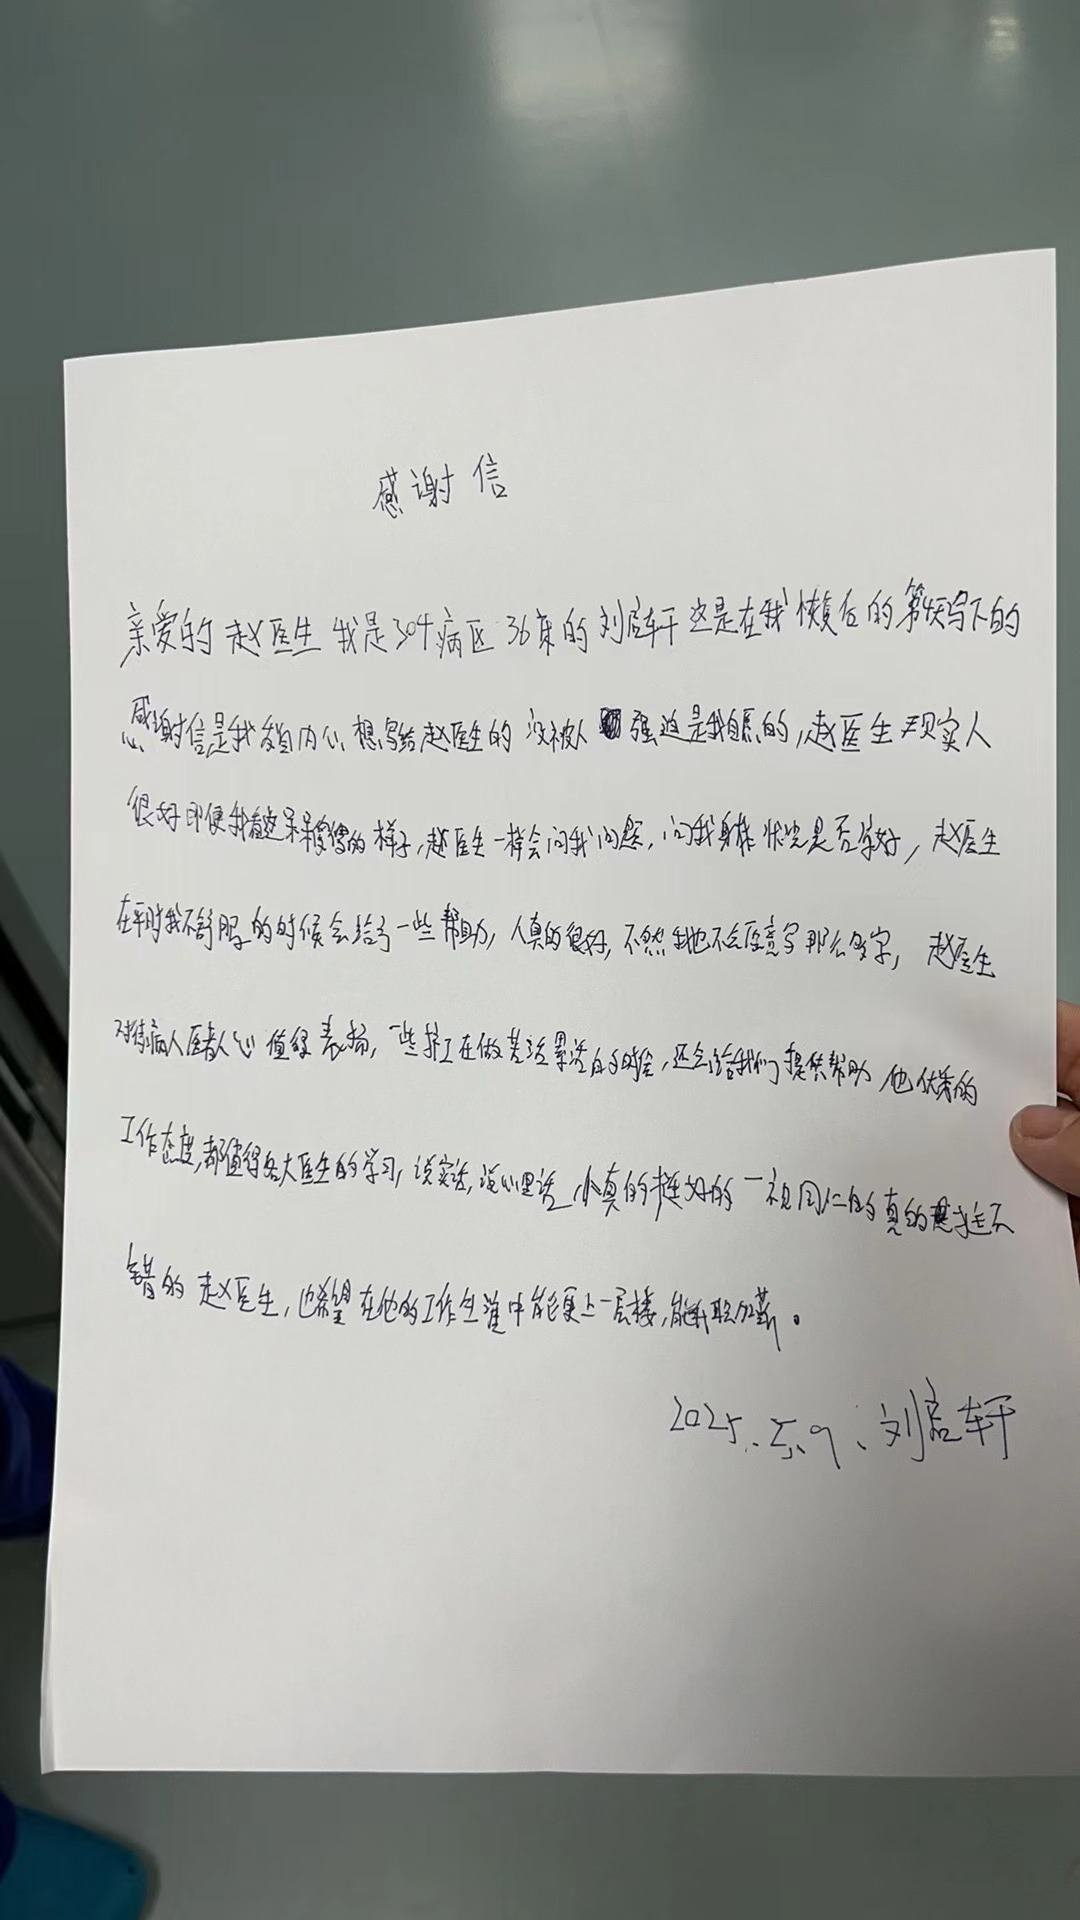 感谢信
亲爱的赵医生我是304病区36床的刘启轩这是在我恢复后的第4天写下的
感谢信是我发自内心想写给赵医生的没被人强迫是我自愿的,赵医生现实人
很好即便我看这呆呆傻傻的样子,赵医生一样会问我问题,问我身体状况是否良好,赵医生
在平时我不舒服的时候会给予一些帮助,人真的很好,不然我也不会愿意写那么多字,赵医生
对待病人医者人心值得表扬,一些护工在做苦活累活的时候,还会给我们提供帮助他优秀的
工作态度,都值得各大医生的学习,说实话,说心里话 真的挺好的一视同仁的真的挺不
错的赵医生,也希望在他的工作生涯中能更上一层楼,能升职加薪。
2025.5.9、刘启轩